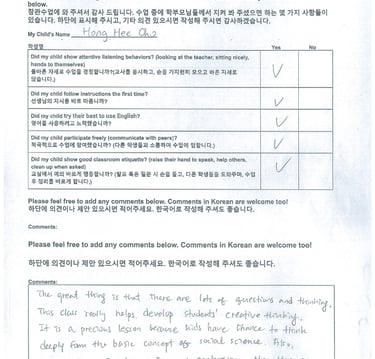 below.
참관수업에 와 주셔서 감사 드립니다. 수업 중에 학부모님들께서 지켜 봐 주셨으면 하는 몇 가지 사항들이
있습니다. 하단에 표시해 주시고, 기타 의견 있으시면 작성해 주시면 감사하겠습니다.
My Child's Name: Hong Hee Cho
학생명
Yes No
Did my child show attentive listening behaviors? (looking at the teacher, sitting nicely,
hands to themselves)
올바른 자세로 수업을 경청합니까?(교사를 응시하고, 손을 가지런히 모으고 바른 자세로
앉습니다.)
Did my child follow instructions the first time?
선생님의 지시를 바로 따릅니까?
Did my child try their best to use English?
영어를 사용하려고 노력했습니까?
Did my child participate freely (communicate with peers)?
적극적으로 수업에 참여했습니까? (다른 학생들과 소통하며 수업에 임합니다.)
Did my child show good classroom etiquette? (raise their hand to speak, help others,
clean up when asked)
교실에서 예의 바르게 행동합니까? (발표 혹은 질문 시 손을 들고, 다른 학생들을 도와주며, 수업
후 정리를 바르게 합니다.)
Please feel free to add any comments below. Comments in Korean are welcome too!
하단에 의견이나 제안 있으시면 적어주세요. 한국어로 작성해 주셔도 좋습니다.
Comments:
Please feel free to add any comments below. Comments in Korean are welcome too!
하단에 의견이나 제안 있으시면 적어주세요. 한국어로 작성해 주셔도 좋습니다.
Comments:
The great thing is that there are lots of questions and thinking.
This class really helps develop students' creative thinking.
It is a precious lesson because kids have chance to think
deeply from the basic concept of social science. Also,